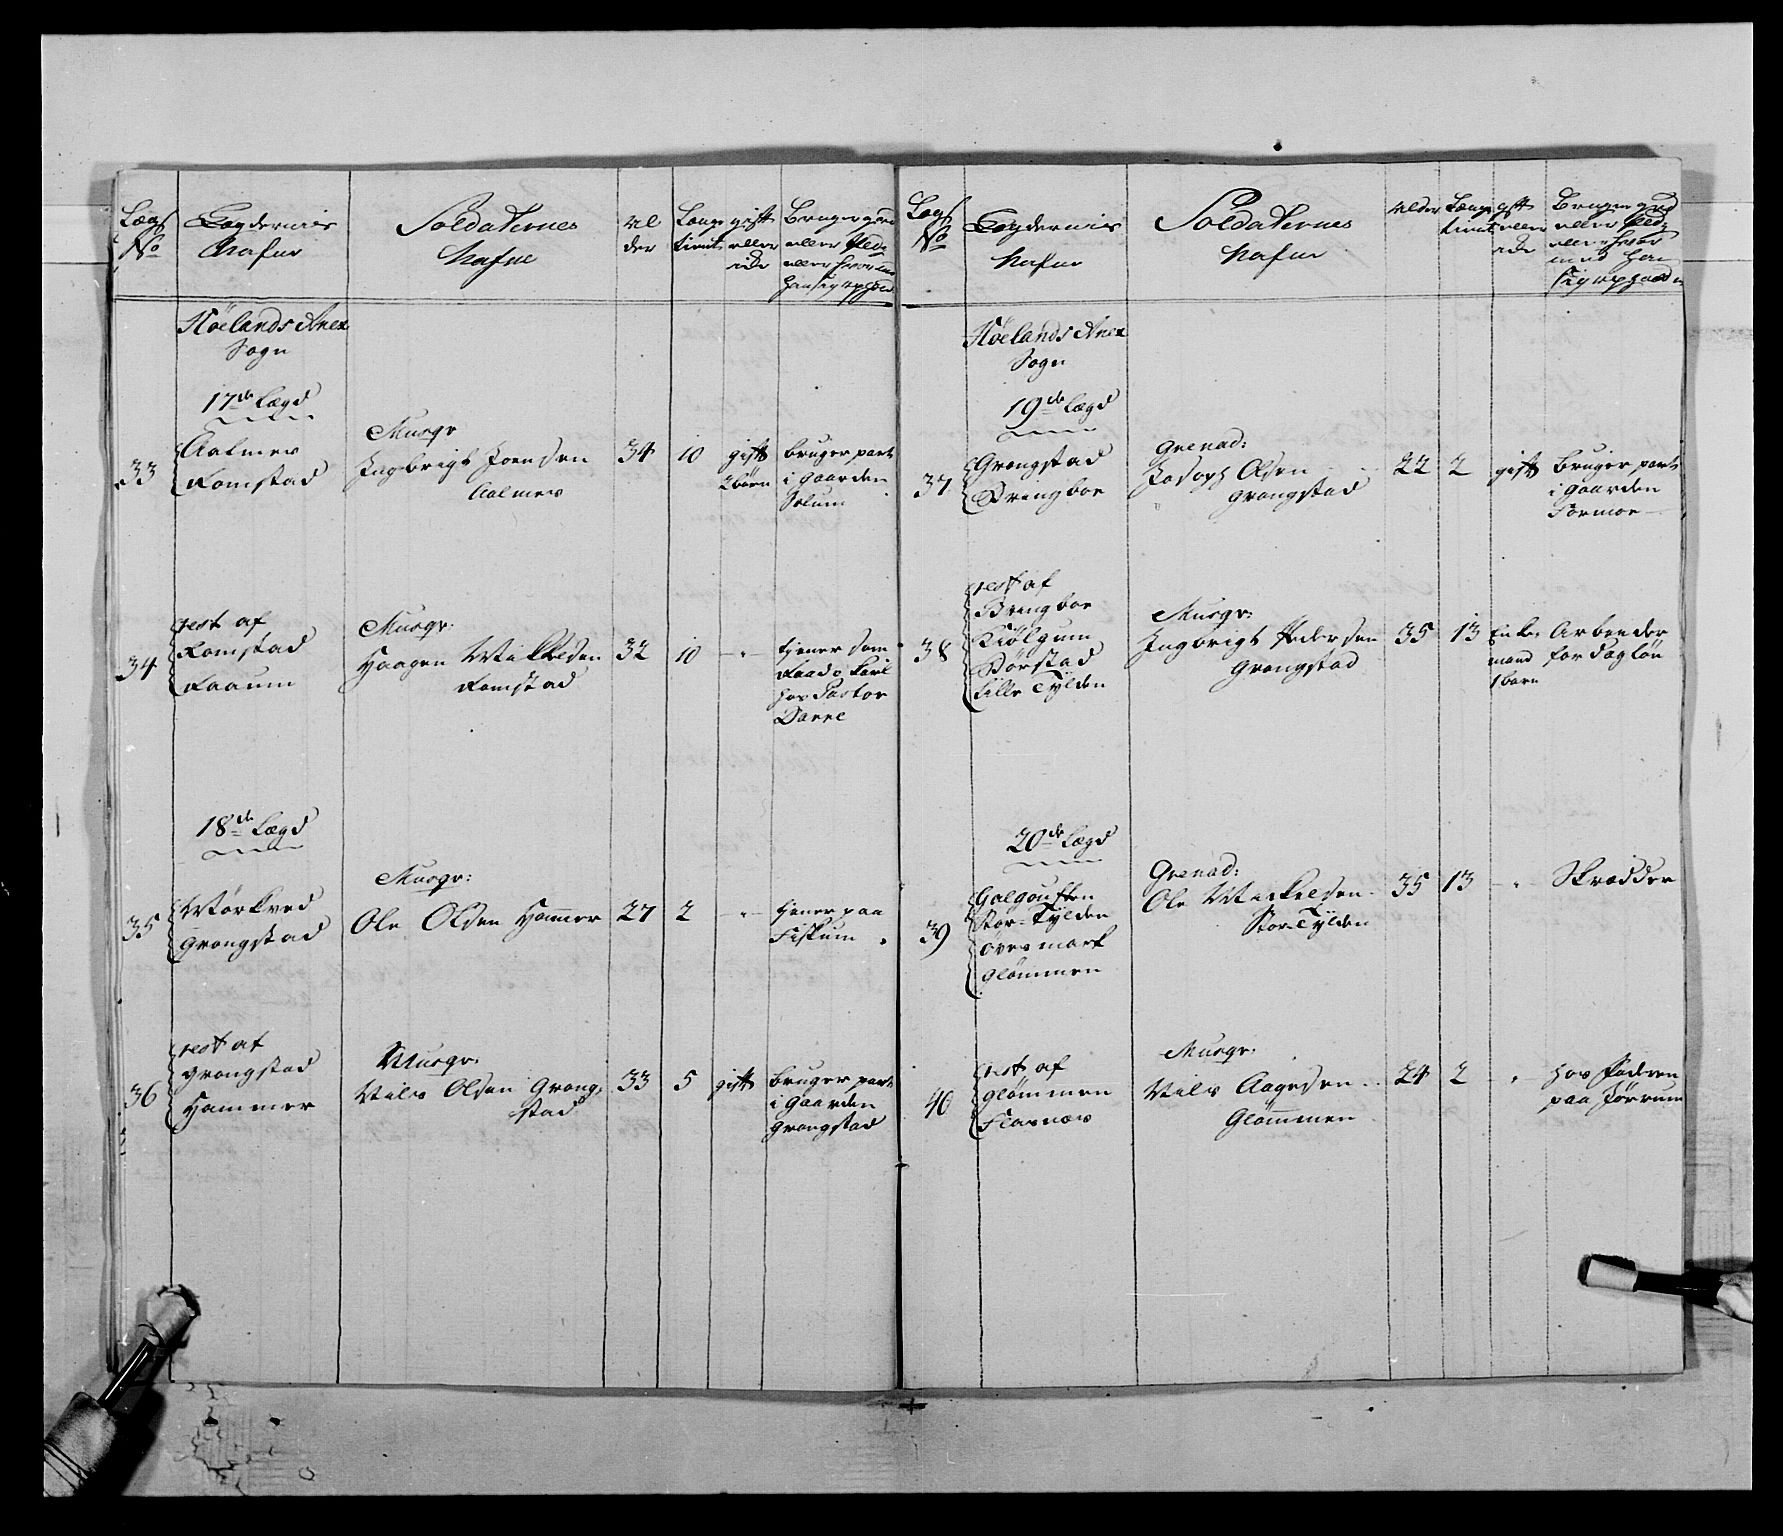 Lægs
No
Lægdernis
Nafne
Soldaternes
Nafne
Al
der
Længe
tient
gift
eller
eide
Bruger gaard
eller Plads
eller hvor
Høelands Anex
Sogn
17de Lægd
33
Aalmes
Romstad
Musqr
Ingebrigt Joensen
Aalmes
34
10
gift
2 børn
bruger part
i gaarden
Solum
34
rest af
Romstad
Raaum
Musqr:
Haagen Mikkelsen
Romstad
32
10
"
tjener som
Raads Karl
hos Pastor
Darre
18de Lægd
35
Mørkved
Grongstad
Musqr:
Ole Olsen Hammer
27
2
"
tjener paa
Fiskum
36
rest af
Grongstad
Hammer
Musqr:
Nils Olsen Grong,
stad
33
5
gift
bruger part
i Gaarden
Grongstad
Lægs
No
Lægdernis
Nafne
Soldaternes
Nafne
Alder
Længe
tient
gift
eller
eide
Bruger gaard
eller Pld,
eller hvor
med han
sig opholder
Høelands Anex
Sogn
19de Lægd
37
Grongstad
Bringboe
Grenad:
Joseph Olsen
Grongstad
22
2
gift
bruger part
i gaarden
Formoe
38
rest af
Bringboe
Kiølgum
Børstad
Lille Tylden
Musqr:
Ingebrigt Pedersen
Grongstad
35
13
Enke
mand
1 barn
Arbeyder
for dagløn
20de Lægd
39
Galgouften
Stor-Tylden
Overmark
Glømmen
Grenad:
Ole Mikkelsen
Stor Tylden
35
13
"
Skrædder
40
rest af
Glømmen
Flasnæs
Musqr:
Nils Aagesen
Glømmen
24
2
"
hos Faderen
paa Jørrum